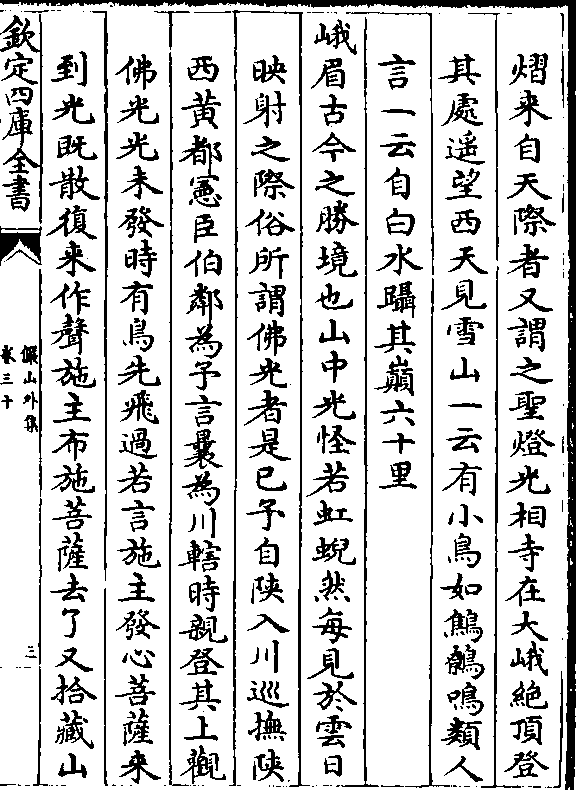 熠来自天際者又謂之聖燈光相寺在大峨絶頂登
其處遥望西天見雪山一云有小鳥如鷦鷯鳴類人
言一云自白水躡其巔六十里
峨眉古今之勝境也山中光怪若虹蜺然每見於雲日
映射之際俗所謂佛光者是已予自陜入川巡撫陜
西黄都憲臣伯鄰為予言曩為川轄時親登其上觀
佛光光未發時有鳥先飛過若言施主發心菩薩来
到光既散復来作聲施主布施菩薩去了又拾藏山
欽定四庫全書
儼山外集
卷三十
三